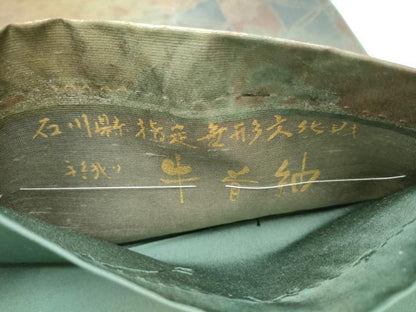 石川県指定無形文化財
牛首紬